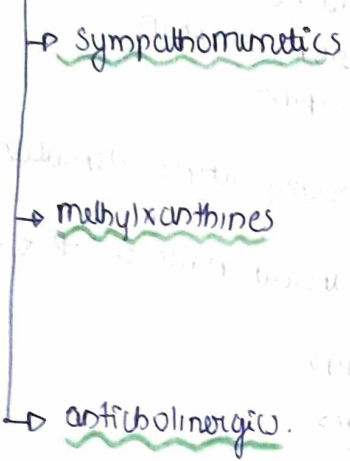 sympathomimetics
methylxanthines
anticholinergics.